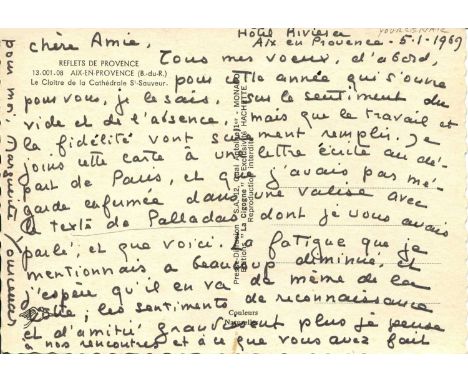 YOURCENAR
Hôtel Riviera
Aix en Provence - 5-1-1969
chère Amie,
REFLETS DE PROVENCE
13.001-08 AIX-EN-PROVENCE (B.-du-R.)
Le Cloître de la Cathédrale St-Sauveur.
Tous mes voeux, d'abord,
pour cette année qui s'ouvre
pour vous, je le sais, sur le sentiment du
vide et de l'absence, mais que le travail et
la fidélité vont seulement remplir. Je
joins cette carte à une lettre écrite au dé-
part de Paris, et que j'avais par mé-
garde enfermée dans une valise avec
le texte de Palladas dont je vous avais
parlé, et que voici. La fatigue que je
mentionnais a beaucoup diminué, et
j'espère qu'il en va de même de la
vôtre; les sentiments de reconnaissance
et d'amitié grandissent plus je pense
à nos rencontres et à ce que vous avez fait
pour moi Marguerite Yourcenar
Editions "La Cigogne" Exclusivité HACHETTE
Reproduction interdite
MONACO
Couleurs
Naturelles